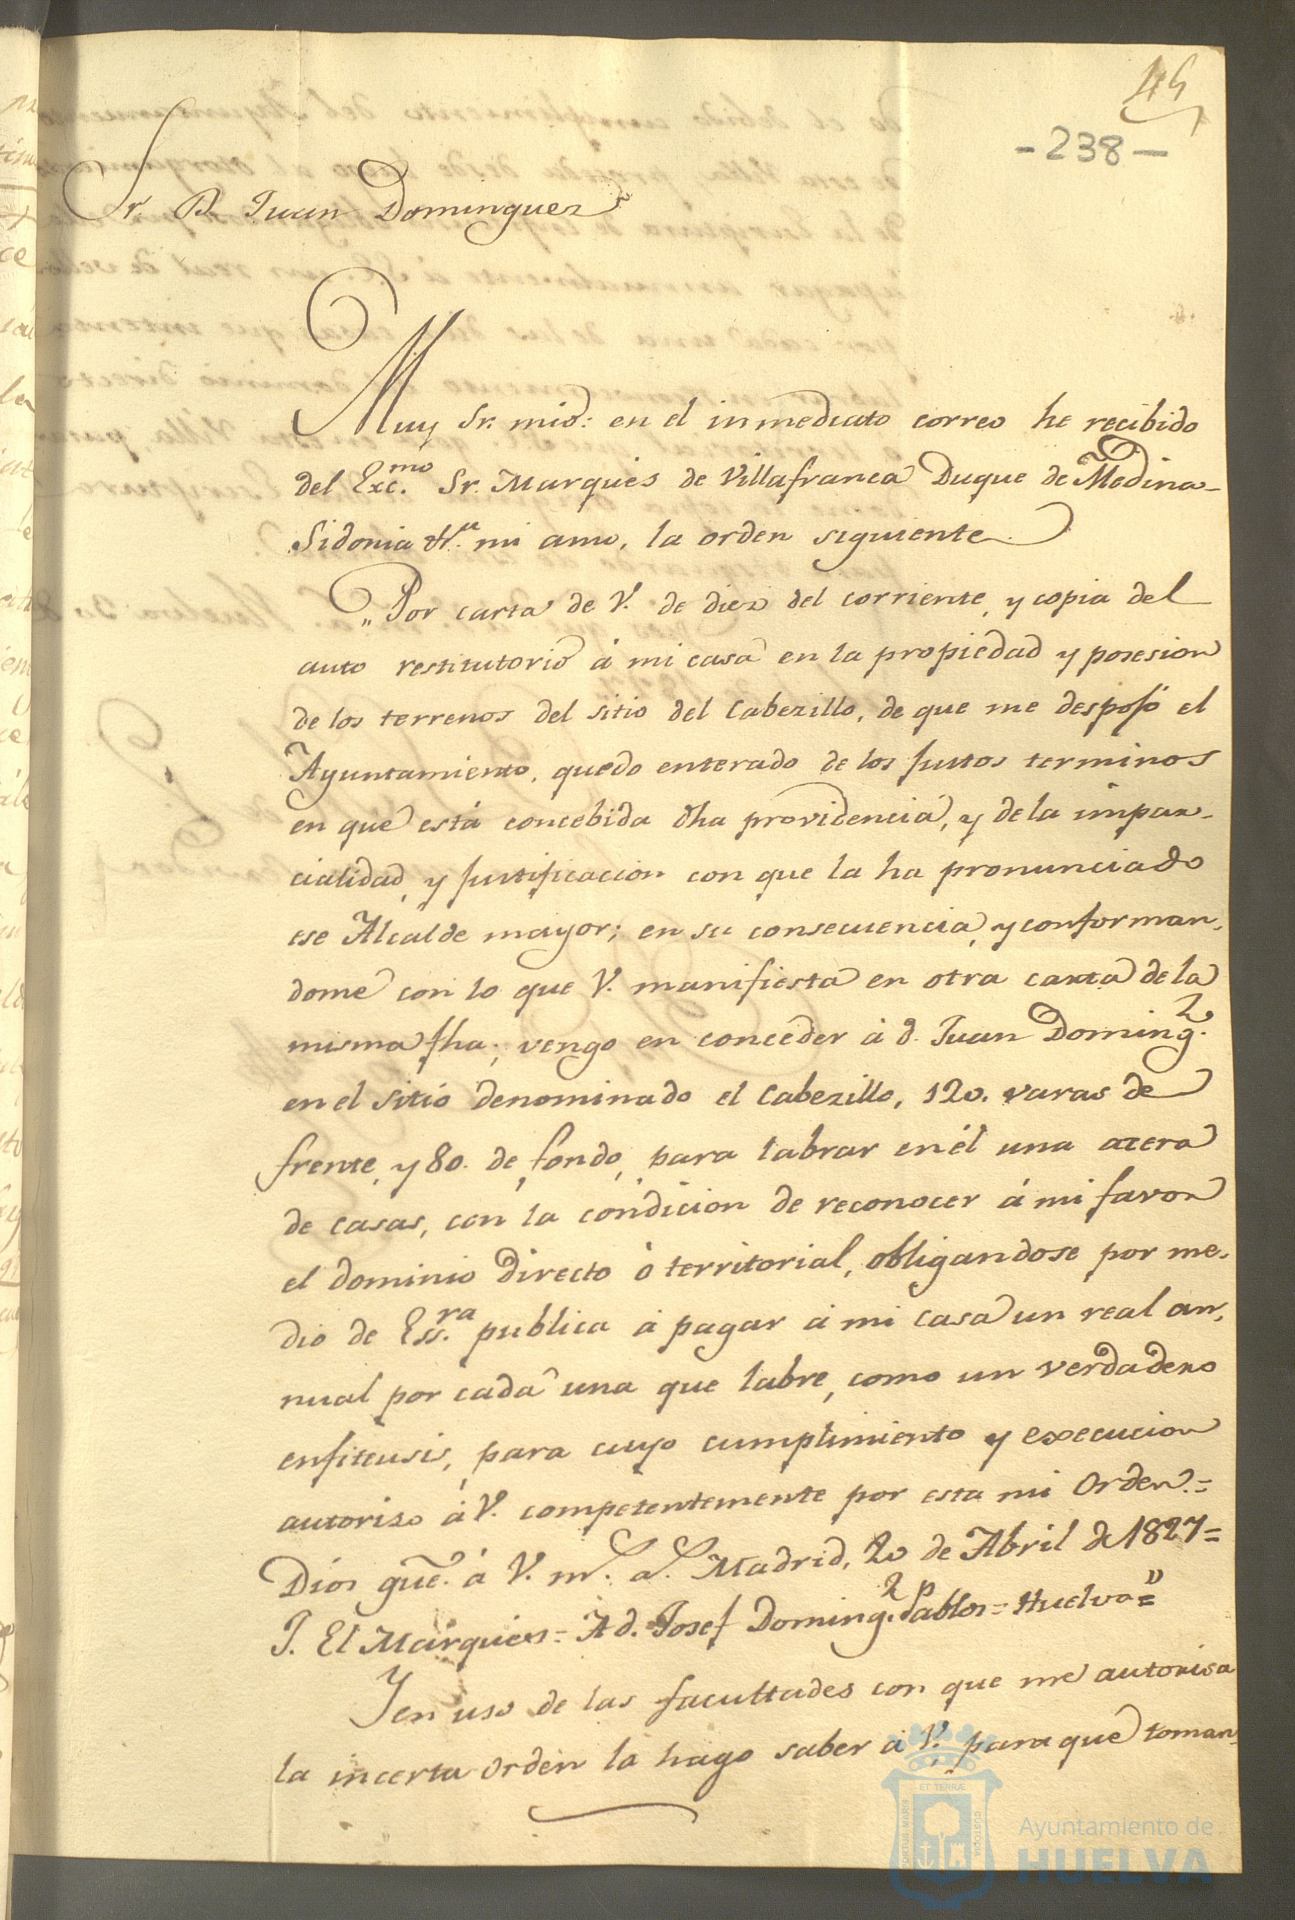 45
-238-
Sr. D. Juan Dominguez
Muy Sr. mio: en el inmediato correo he recibido
del Exc.mo Sr. Marques de Villafranca Duque de Medina-
Sidonia &.a mi amo, la orden siguiente.
"Por carta de V. de diez del corriente, y copia del
auto restitutorio á mi casa en la propiedad y posesion
de los terrenos del sitio del Cabezillo, de que me despojó el
Ayuntamiento, quedo enterado de los justos terminos
en que está concebida dha providencia, y de la impar-
cialidad, y justificacion con que la ha pronunciado
ese Alcalde mayor; en su consecuencia, y conforman-
dome con lo que V. manifiesta en otra carta de la
misma fha; vengo en conceder á d. Juan Doming.z
en el sitio denominado el Cabezillo, 120. varas de
frente, y 80. de fondo, para labrar en él una acera
de casas, con la condicion de reconocer á mi favor
el dominio directo ó territorial, obligandose por me-
dio de Ess.ra publica á pagar á mi casa un real an-
nual por cada una que labre, como un verdadero
enfiteusis, para cuyo cumplimiento y execucion
autorizo á V. competentemente por esta mi Orden.=
Dios gue. á V. m.s a.s Madrid, 20 de Abril de 1827=
P. El Marques= A d. Josef Doming.z Pablos= Huelva="
Y en uso de las facultades con que me autoriza
la incerta orden la hago saber á V. para que toman-
ET TERRÆ
PORTUS MARIS
CUSTODIA
Ayuntamiento de
HUELVA